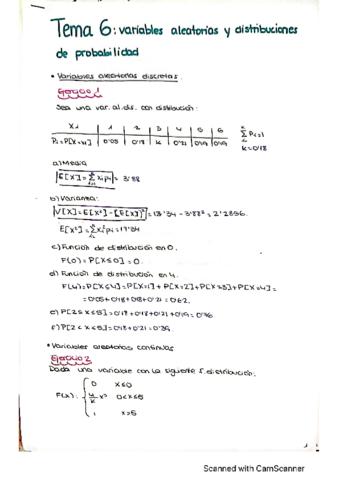 Tema 6: variables aleatorias y distribuciones
de probabilidad
• Variables aleatorias discretas:
Ejercicio 1
Sea una var. al. dis. con distribución:
Xi | 1 | 2 | 3 | 4 | 5 | 6
Pi = P[X=xi] | 0'05 | 0'18 | K | 0'21 | 0'19 | 0'19
Σ Pi = 1
K = 0'18
a) Media
E[X] = Σ xi pi = 3'88
b) Varianza:
V[X] = E[X²] - (E[X])² = 17'34 - 3'88² = 2'2856.
E[X²] = Σ xi² pi = 17'34
c) Función de distribución en 0.
F(0) = P[X≤0] = 0.
d) Función de distribución en 4.
F(4) = P[X≤4] = P[X=1] + P[X=2] + P[X=3] + P[X=4] =
= 0'05 + 0'18 + 0'18 + 0'21 = 0'62.
e) P[2≤X≤5] = 0'18 + 0'18 + 0'21 + 0'19 = 0'76
f) P[2<X<5] = 0'18 + 0'21 = 0'39
• Variables aleatorias continuas
Ejercicio 2
Dada una variable con la siguiente f. distribución:
0 x≤0
F(x): x³ 0<x≤5
1 x>5
1
Scanned with CamScanner